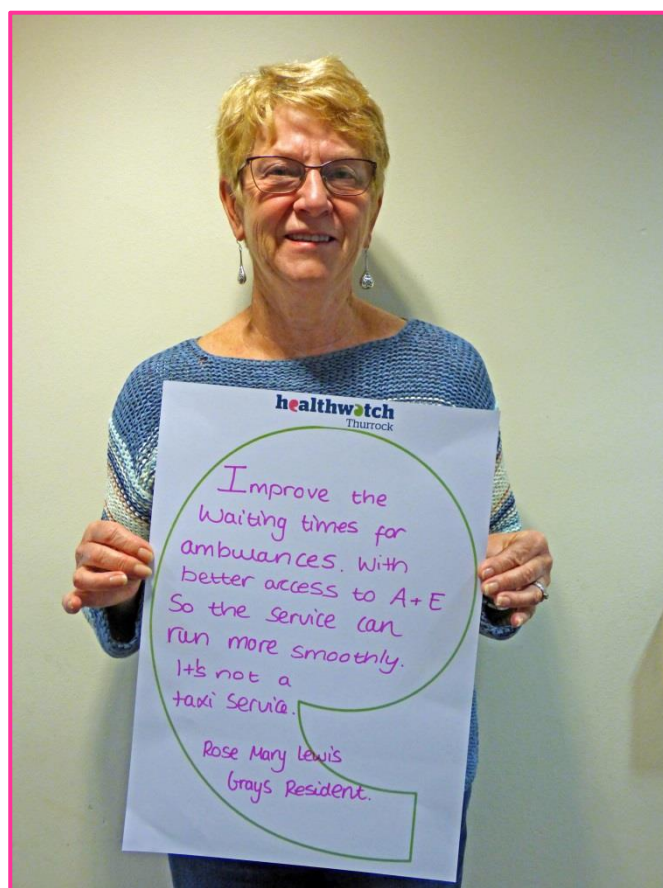 healthwatch
Thurrock
Improve the
waiting times for
ambulances. With
better access to A+E
So the service can
run more smoothly.
It's not a
taxi service.
Rose Mary Lewis
Grays Resident.